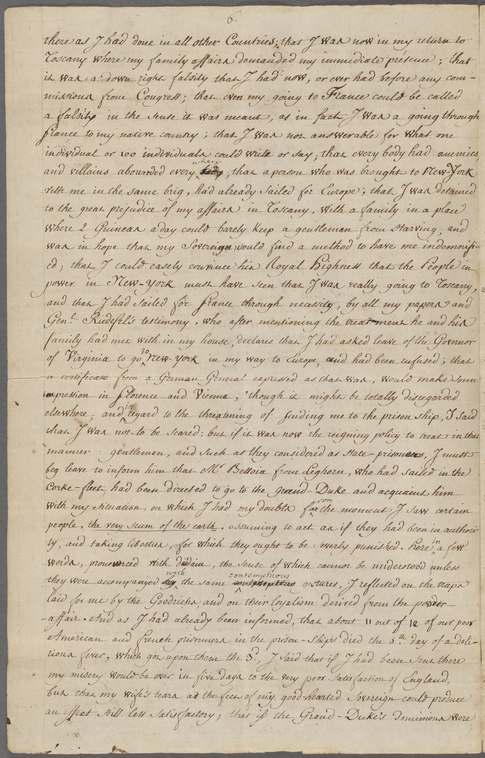 6.
there as I had done in all other Countries; that I was now in my return to
Toscany where my family affairs demanded my immediate presence; that
it was a down right falsity that I had now, or ever had before any com-
missions from Congress; that even my going to France could be called
a falsity in the sense it was meant, as in fact I was a going through
France to my native country; that I was not answerable for what one
individual or 100 individuals could write or say, that every body had enemies
and villains abounded every where, that a person who was brought to New-York
with me in the same brig, had already sailed for Europe; that I was detained
to the great prejudice of my affairs in Toscany, with a family in a place
where 2 Guineas a day could barely keep a gentleman from starving, and
was in hope that my Sovereign would find a method to have me indemnifi-
ed; that I could easely convince his Royal Highness that the People in
power in New-York must have seen that I was really going to Toscany,
and that I had sailed for France through necessity, by all my papers and
Genl. Riedesel's testimony, who after mentioning the treatment he and his
family had met with in my house, declares that I had asked leave of the Governor
of Virginia to go to New-York in my way to Europe, and had been refused; that
a certificate from a German General expressed as that was, would make some
impression in Florence and Vienna, though it might be totally disregarded
elsewhere; and regard to the threatening of sending me to the prison ship, I said
that I was not to be scared: but if it was now the reigning policy to treat in that
manner gentlemen, and such as they considered as State-prisoners, I must
beg leave to inform them that Mr. Bettoia from Leghorn, who had sailed in the
Corke-fleet, had been directed to go to the grand-Duke and acquaint him
with my situation, on which I had my doubts from the moment I saw certain
people, the very scum of the earth, assuming to act as if they had been in authori-
ty, and taking liberties, for which they ought to be severely punished. Here in a few
words, pronounced with disdain, the sense of which cannot be understood unless
they were accompanyed with the same contemptuous gestures, I reflected on the traps
laid for me by the Goodrichs, and on their loyalism derived from the powder-
-affair. And as I had already been informed, that about 11 out of 12 of our poor
American and french prisoners in the prison-ships died the 5th. day of a dele-
rious fever, which got upon them the 3d. I said that if I had been sent there
my misery would be over in five days to the very poor satisfaction of England,
but that my wife's tears at the feet of my good hearted Sovereign could produce
an effect still less satisfactory; that if the Grand-Duke's dominions were